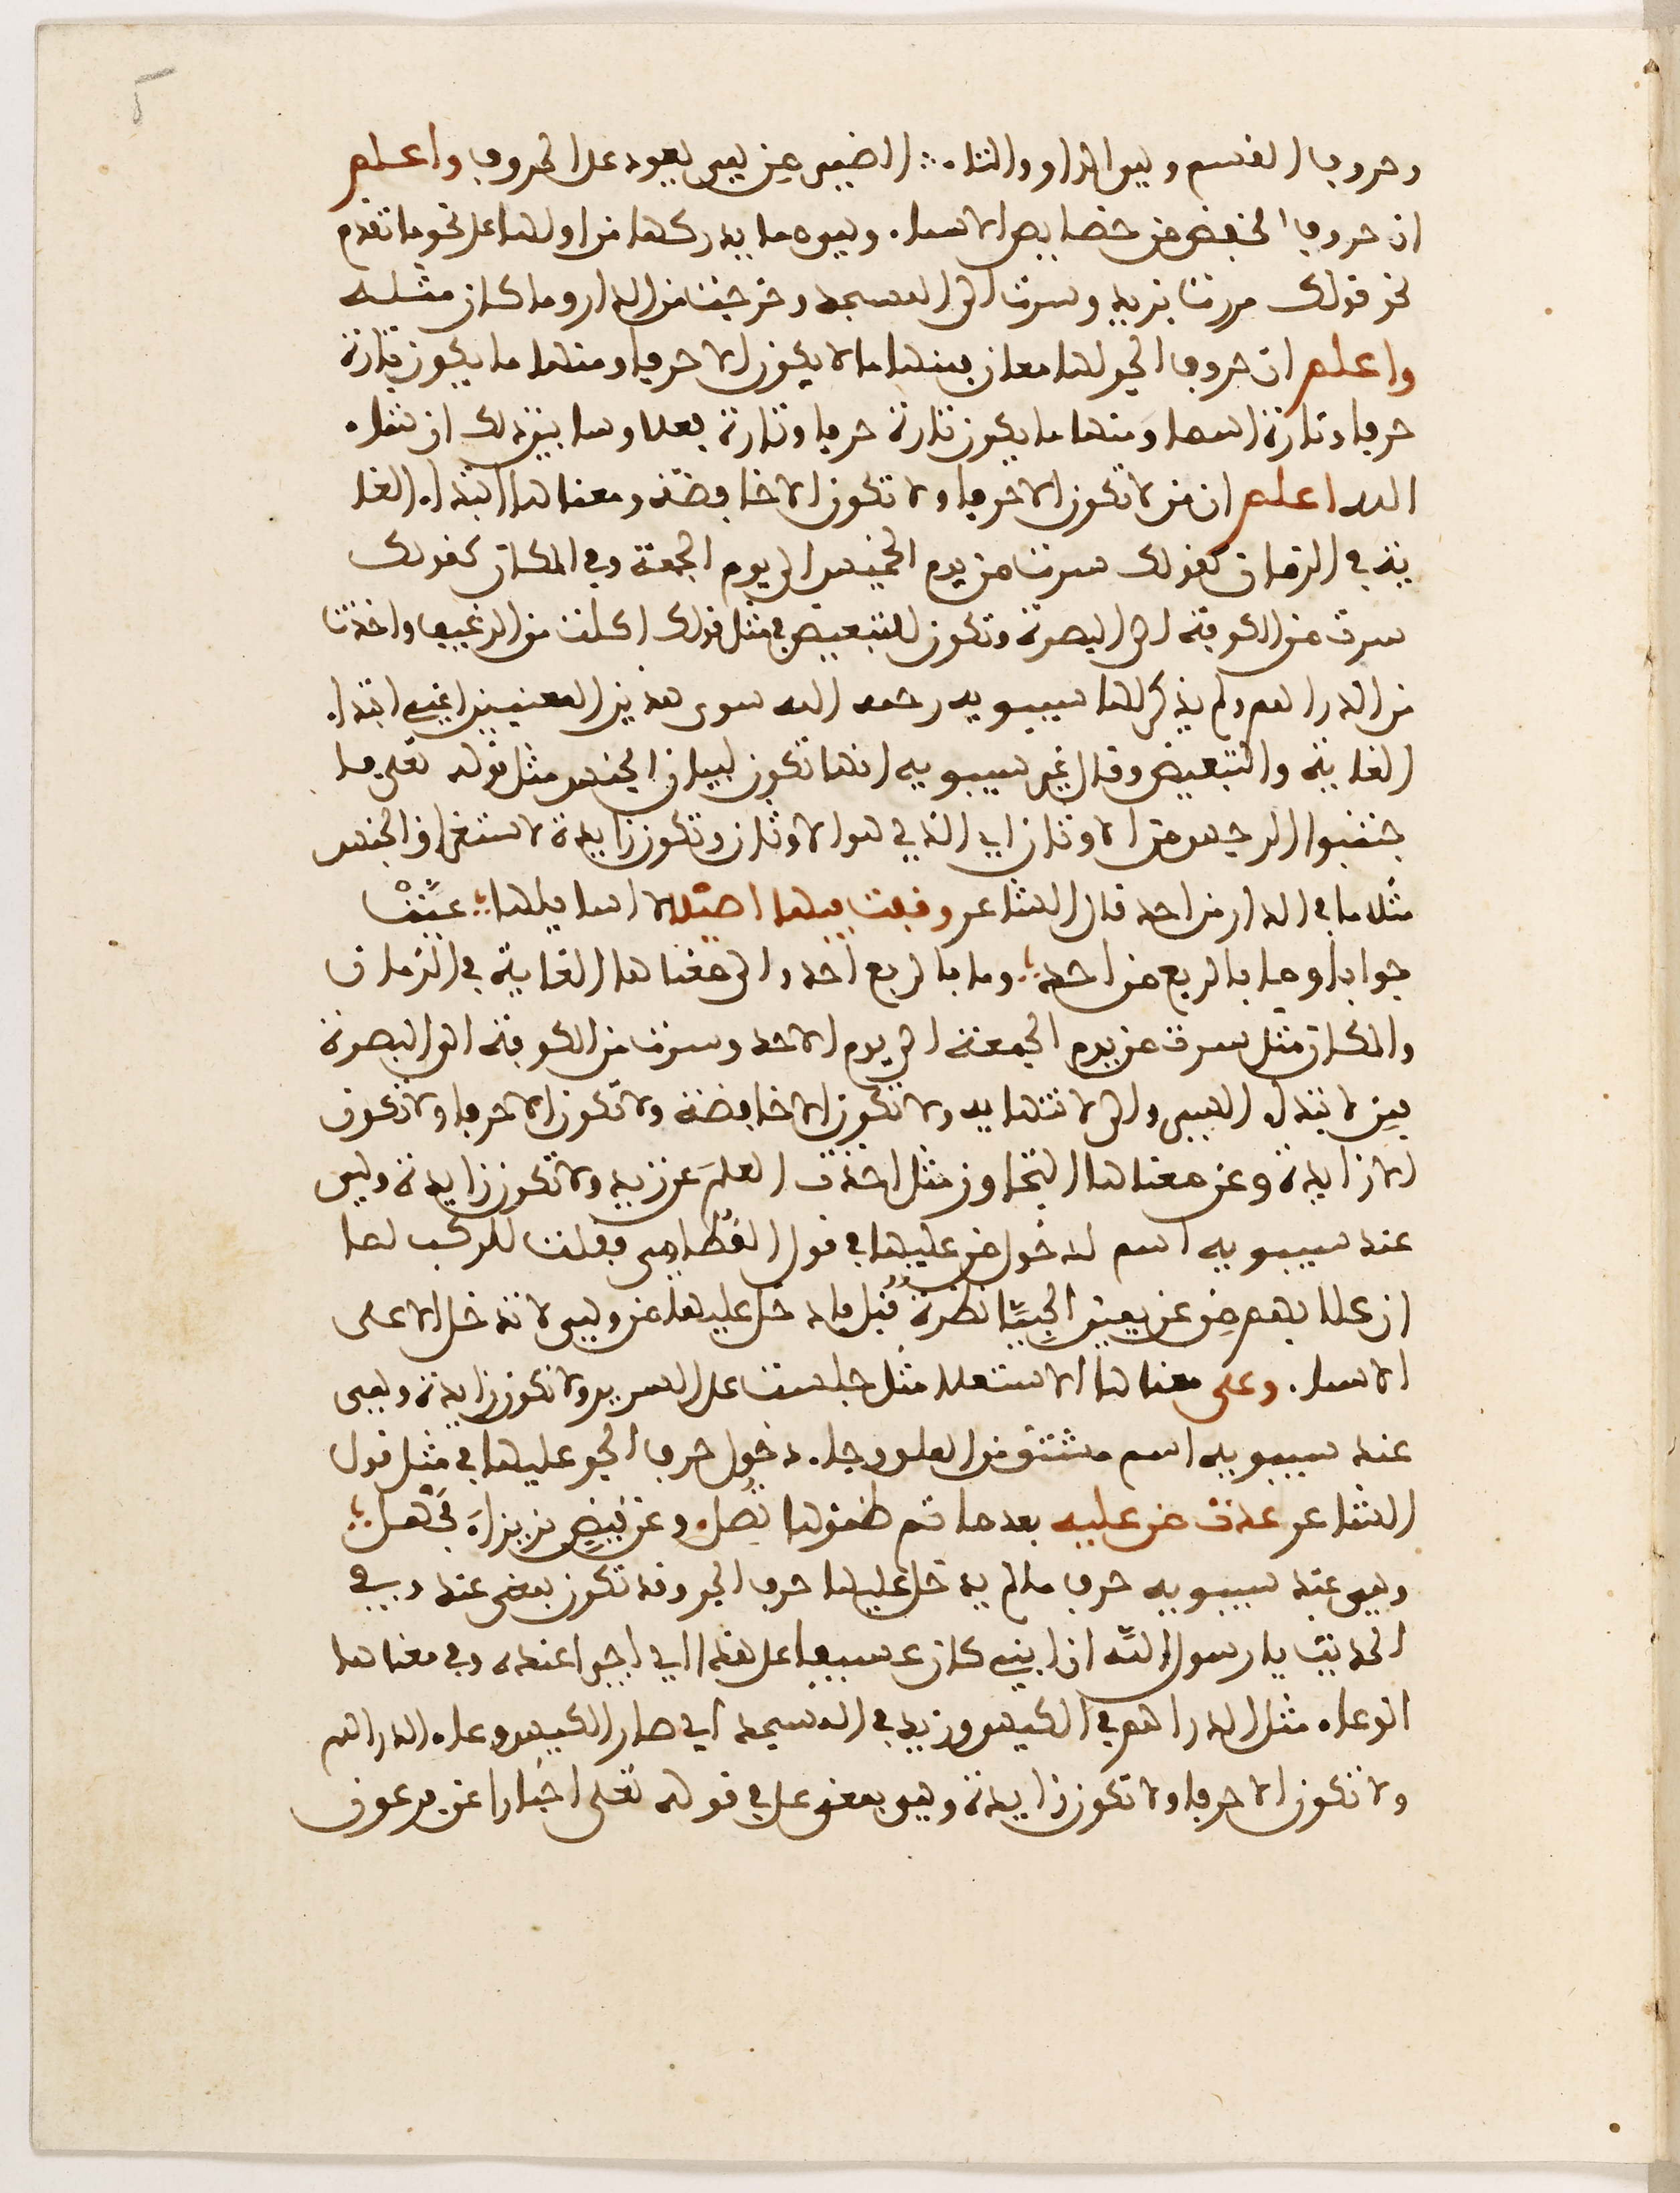 وحروف القسم وهي الواو والتاء ∴ الضمير في هي يعود على الحروف واعلم
ان حروف الخفض من خصايص الاسماء وهو ما يدركها من اولها على نحو ما تقدم
نحو قولك مررت بزيد وسرت الى المسجد وخرجت من الدار وما كان مثله
واعلم ان حروف الجر لها معان فمنها ما لا يكون الا حرفا ومنها ما يكون تارة
حرفا وتارة اسما ومنها ما يكون تارة حرفا وتارة فعلا وسابين ذلك ان شاء
الله اعلم ان من لا تكون الا حرفا ولا تكون الا خافضة ومعناها ابتداء الغا
ية في الزمان كقولك سرت من يوم الخميس الى يوم الجمعة وفي المكان كقولك
سرت من الكوفة الى البصرة وتكون للتبعيض في مثل قولك اكلت من الرغيف واخذت
من الدراهم ولم يذكر لها سيبويه رحمه الله سوى هذين المعنيين اعني ابتداء
الغاية والتبعيض وقال غير سيبويه انها تكون لبيان الجنس مثل قوله تعلى فا
جتنبوا الرجس من الاوثان اي الذي هو الاوثان وتكون زايدة لاستغراق الجنس
مثل ما في الدار من احد قال الشاعر وقفت فيها اصيلالا اسايلها عيت
جوابا وما بالربع من احد وما بالربع احد والى معناها الغاية في الزمان
والمكان مثل سرت من يوم الجمعة الى يوم الاحد وسرت من الكوفة الى البصرة
فمن لابتداء السير والى لانتهايه ولا تكون الا خافضة ولا تكون الا حرفا ولا تكون
الا زايدة وعن معناها التجاوز مثل اخذت العلم عن زيد ولا تكون زايدة وهي
عند سيبويه اسم لدخول من عليها في قول القطامي فقلت للركب لما
ان علا بهم من عن يمين الحبيا نظرة قبل فادخل عليها من وهي لا تدخل الا على
الاسماء وعلى معناها الاستعلاء مثل جلست على السرير ولا تكون زايدة وهي
عند سيبويه اسم مشتق من العلو وجاء دخول حرف الجر عليها في مثل قول
الشاعر غدت من عليه بعد ما تم ظمؤها تصل وعن قيض بزيزاء مجهل
وهي عند سيبويه حرف ما لم يدخل عليها حرف الجر وقد تكون بمعنى عند وفي
الحديث يا رسول الله ان ابني كان عسيفا على هذا اي اجيرا عنده وفي معناها
الوعاء مثل الدراهم في الكيس وزيد في المسجد اي صار الكيس وعاء الدراهم
ولا تكون الا حرفا ولا تكون زايدة وهي بمعنى على في قوله تعلى اخبارا عن فرعون